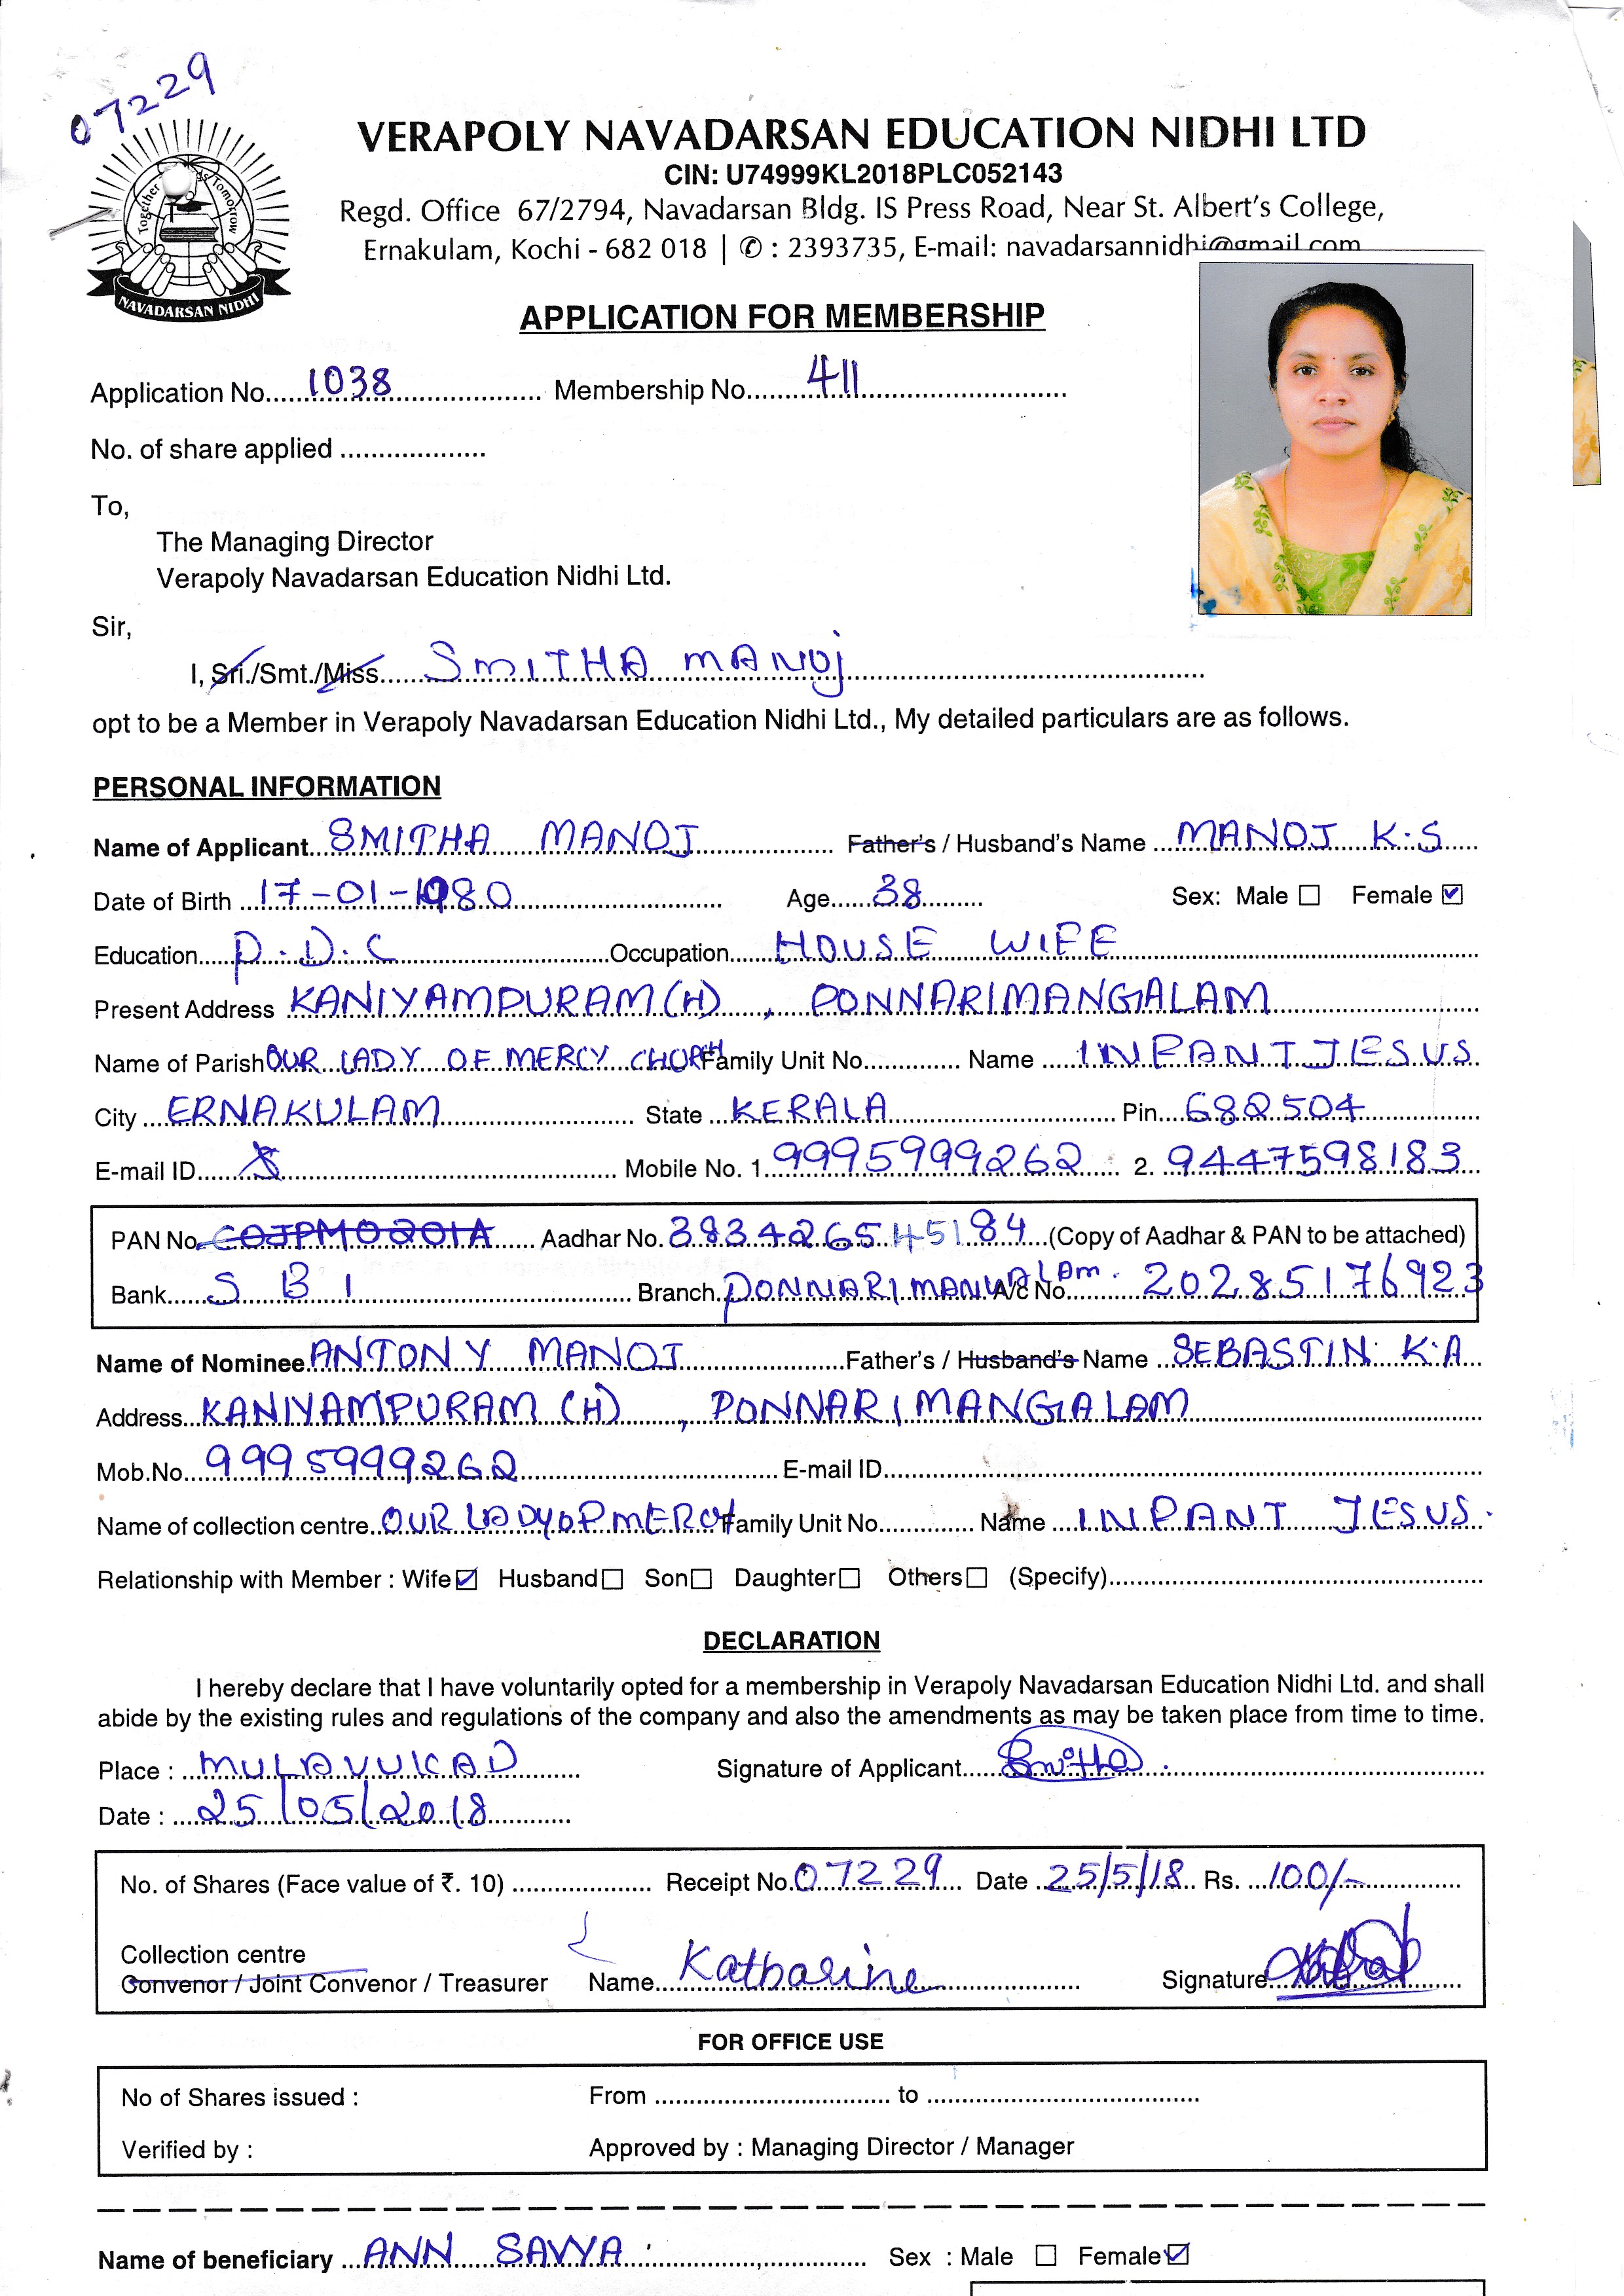 07229
Together towards Tomorrow
NAVADARSAN NIDHI
VERAPOLY NAVADARSAN EDUCATION NIDHI LTD
CIN: U74999KL2018PLC052143
Regd. Office 67/2794, Navadarsan Bldg. IS Press Road, Near St. Albert's College,
Ernakulam, Kochi - 682 018 | ✆ : 2393735, E-mail: navadarsannidhi@gmail.com
APPLICATION FOR MEMBERSHIP
Application No. 1038 Membership No. 411
No. of share applied
To,
The Managing Director
Verapoly Navadarsan Education Nidhi Ltd.
Sir,
I, Sri./Smt./Miss SMITHA MANOJ
opt to be a Member in Verapoly Navadarsan Education Nidhi Ltd., My detailed particulars are as follows.
PERSONAL INFORMATION
Name of Applicant SMITHA MANOJ Father's / Husband's Name MANOJ K.S
Date of Birth 17-01-1980 Age 38 Sex: Male ☐ Female ☑
Education P.D.C Occupation HOUSE WIFE
Present Address KANIYAMPURAM (H), PONNARIMANGALAM
Name of Parish OUR LADY OF MERCY CHURH Family Unit No. Name INPANT JESUS
City ERNAKULAM State KERALA Pin 682504
E-mail ID Mobile No. 1. 9995999262 2. 9447598183
PAN No. Aadhar No. 383426545184 (Copy of Aadhar & PAN to be attached)
Bank S B I Branch PONNARIMANGALAM. A/c No. 20285176923
Name of Nominee ANTONY MANOJ Father's / Husband's Name SEBASTIN K.A
Address KANIYAMPURAM (H), PONNARIMANGALAM
Mob.No. 9995999262 E-mail ID
Name of collection centre OUR LADY OF MERCY Family Unit No. Name INPANT JESUS.
Relationship with Member : Wife ☑ Husband ☐ Son ☐ Daughter ☐ Others ☐ (Specify)
DECLARATION
I hereby declare that I have voluntarily opted for a membership in Verapoly Navadarsan Education Nidhi Ltd. and shall
abide by the existing rules and regulations of the company and also the amendments as may be taken place from time to time.
Place : MULAVUKAD Signature of Applicant Smitha
Date : 25/05/2018
No. of Shares (Face value of ₹. 10) Receipt No. 07229 Date 25/5/18 Rs. 100/-
Collection centre
Convenor / Joint Convenor / Treasurer Name Katharine Signature
FOR OFFICE USE
No of Shares issued : From to
Verified by : Approved by : Managing Director / Manager
Name of beneficiary ANN SAVYA Sex : Male ☐ Female ☑